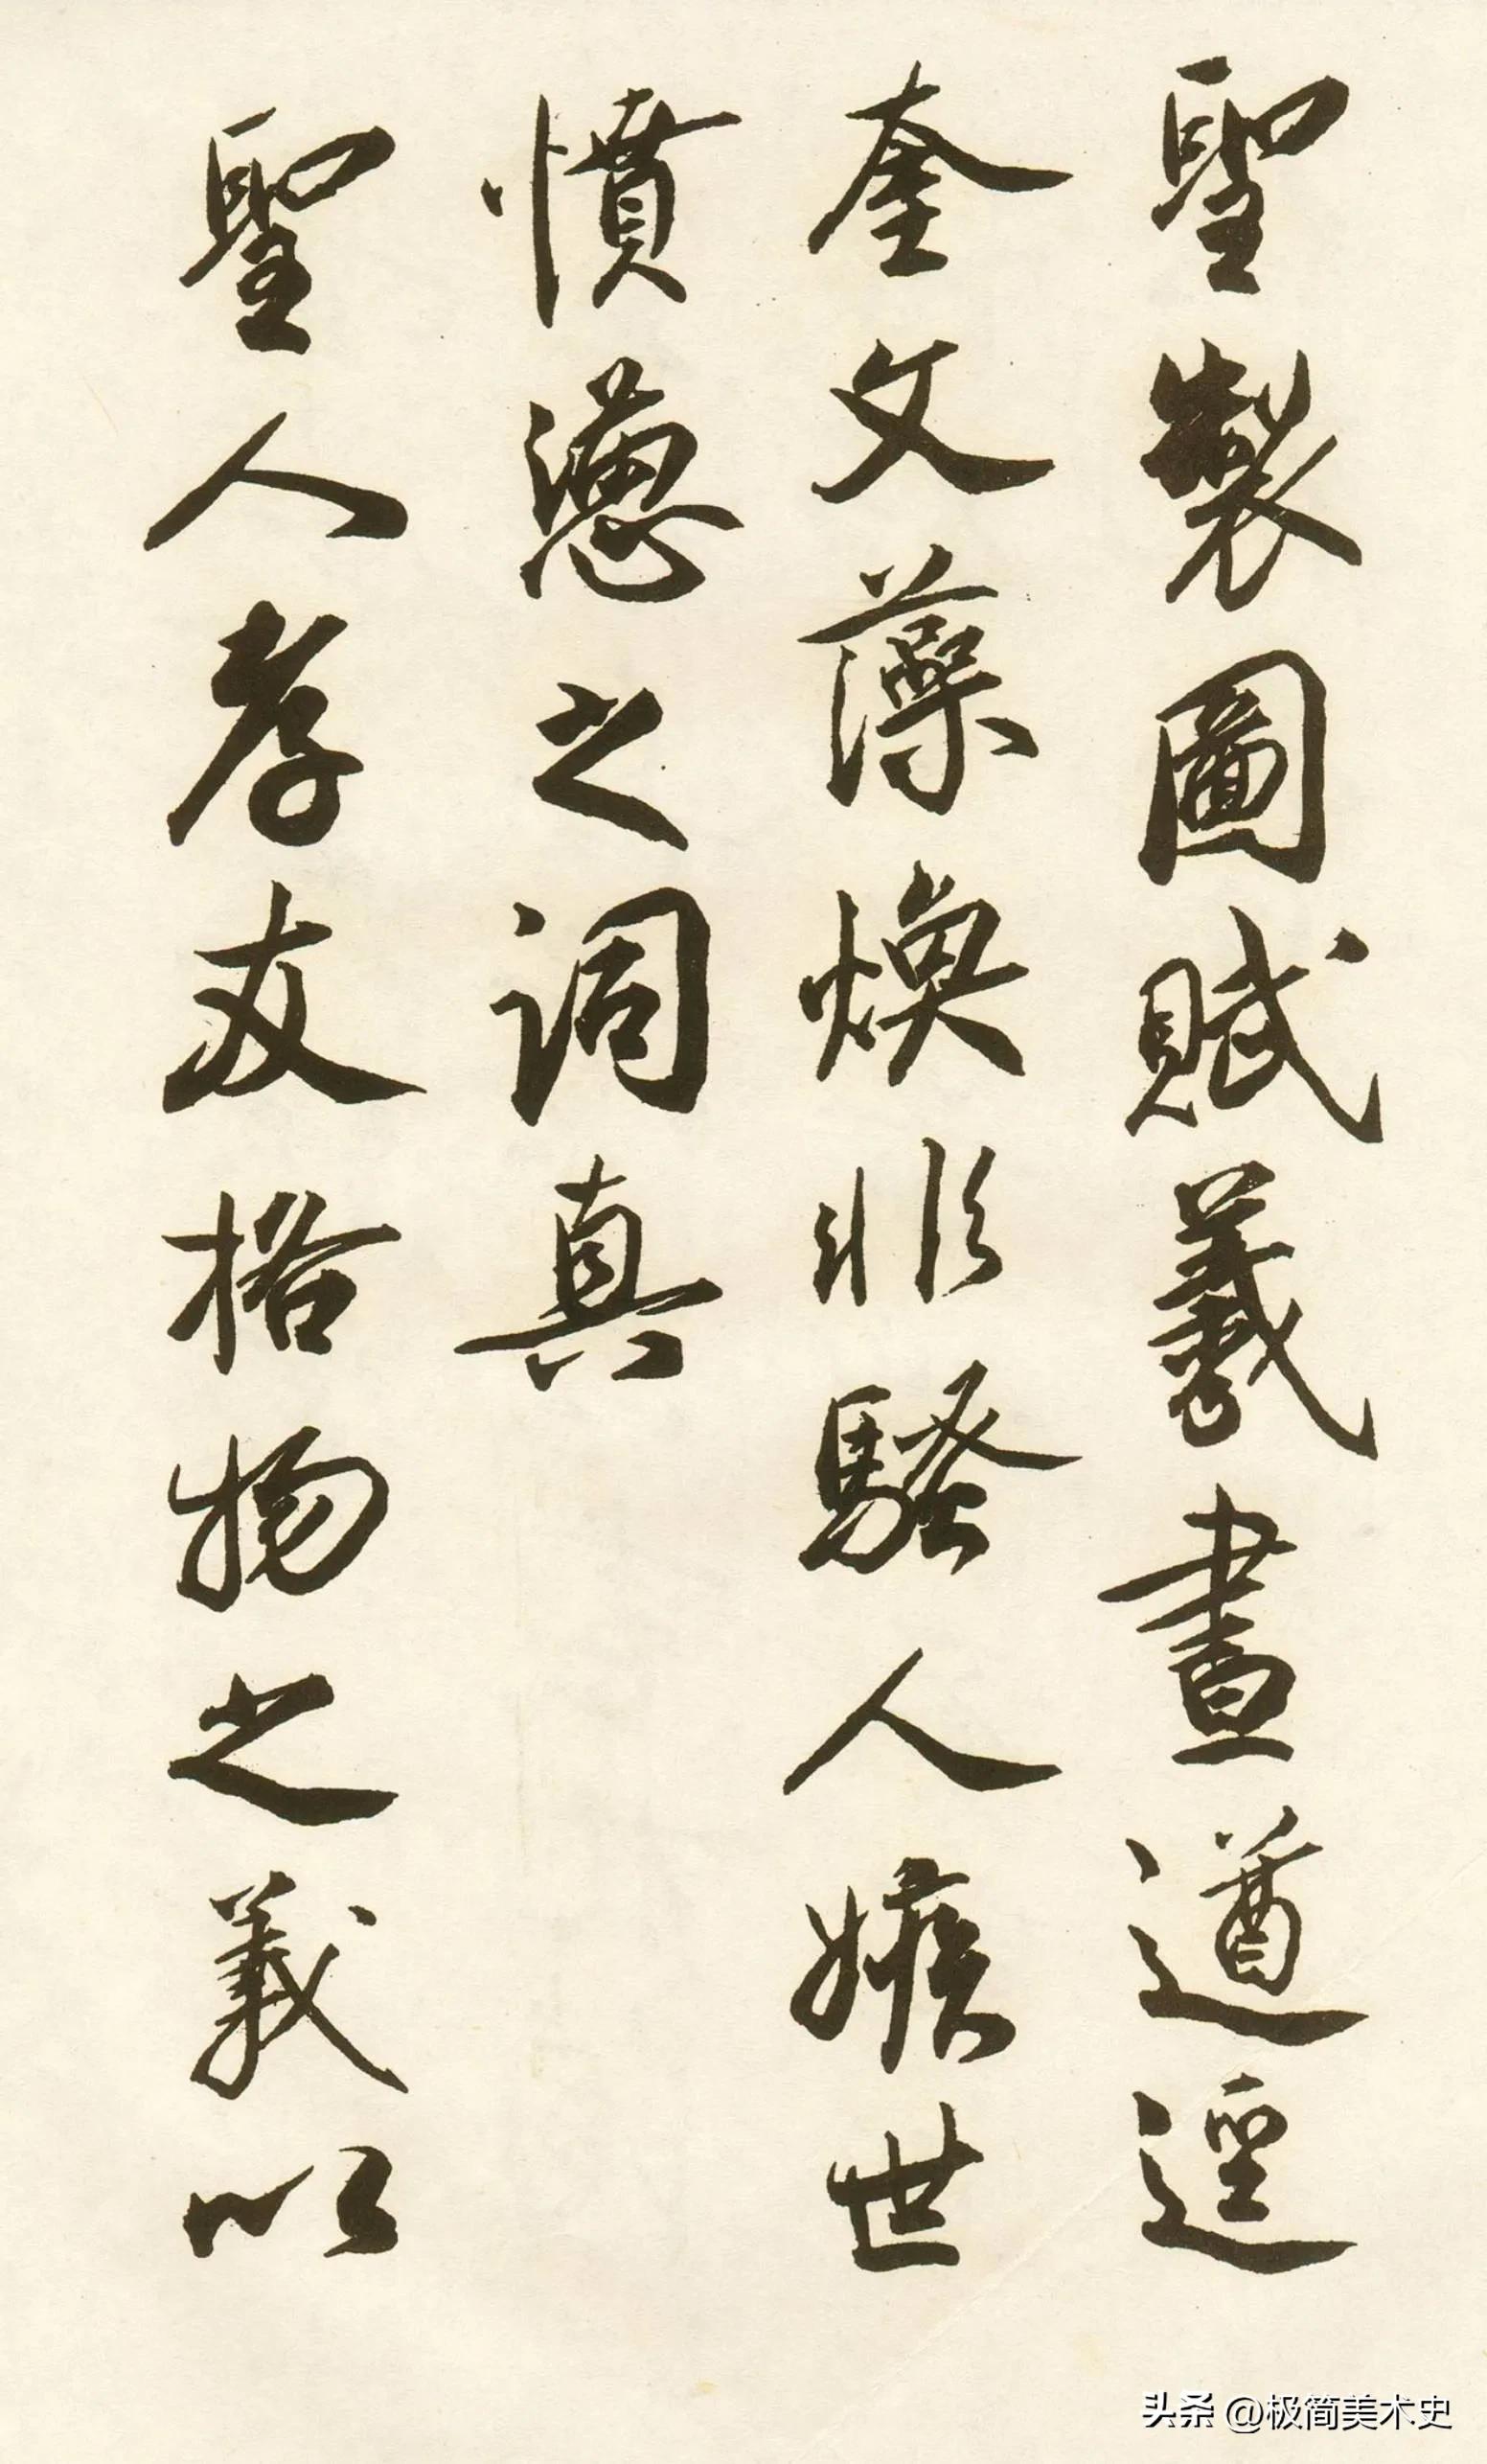 聖製圖賦羲畫遒逕
奎文藻煥非騷人嫉世
憤懣之詞真
聖人孝友格物之義以
头条 @极简美术史